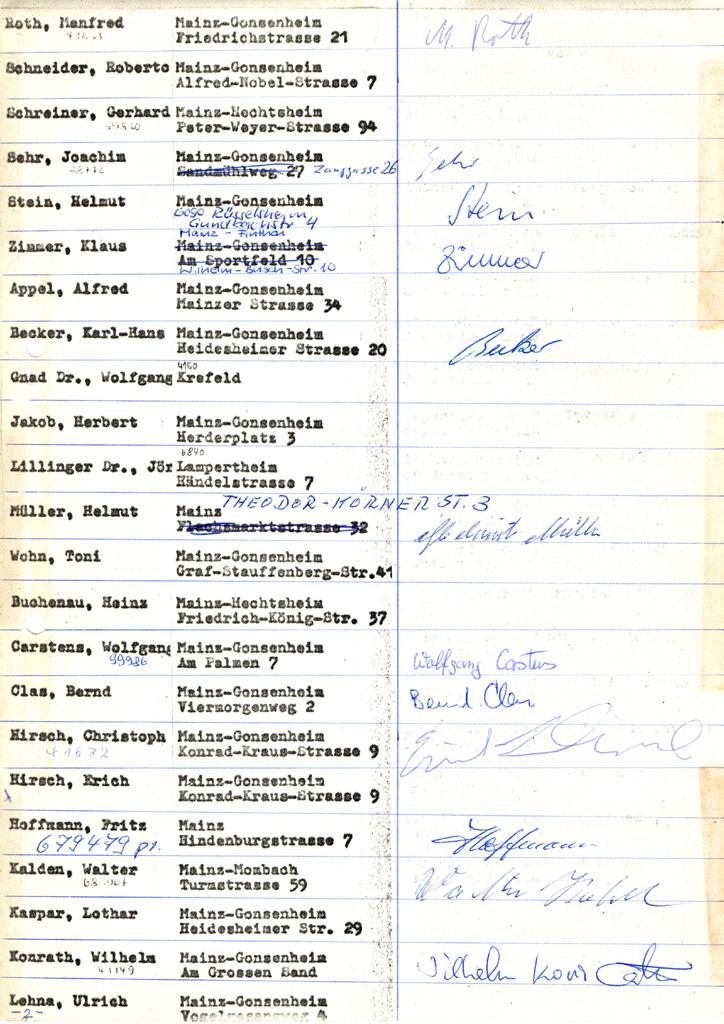 Roth, Manfred Mainz-Gonsenheim M. Roth
Friedrichstrasse 21
Schneider, Roberto Mainz-Gonsenheim
Alfred-Nobel-Strasse 7
Schreiner, Gerhard Mainz-Hechtsheim
Peter-Weyer-Strasse 94
Sehr, Joachim Mainz-Gonsenheim Sehr
Sandmühlweg 27 Zanggasse 26
Stein, Helmut Mainz-Gonsenheim Stein
6090 Rüsselsheim
4
Mainz - Finthen
Zimmer, Klaus Mainz-Gonsenheim Zimmer
Am Sportfeld 10
Wilhelm-Busch-Str. 10
Appel, Alfred Mainz-Gonsenheim
Mainzer Strasse 34
Becker, Karl-Hans Mainz-Gonsenheim Becker
Heidesheimer Strasse 20
4150
Gnad Dr., Wolfgang Krefeld
Jakob, Herbert Mainz-Gonsenheim
Herderplatz 3
6840
Lillinger Dr., Jör Lampertheim
Händelstrasse 7
THEODOR-KÖRNER ST. 3
Müller, Helmut Mainz
Flachsmarktstrasse 32 Helmut Müller
Wohn, Toni Mainz-Gonsenheim
Graf-Stauffenberg-Str.41
Buchenau, Heinz Mainz-Hechtsheim
Friedrich-König-Str. 37
Carstens, Wolfgang Mainz-Gonsenheim
99986 Am Palmen 7 Wolfgang Carstens
Clas, Bernd Mainz-Gonsenheim Bernd Clas
Viermorgenweg 2
Hirsch, Christoph Mainz-Gonsenheim
41672 Konrad-Kraus-Strasse 9
Hirsch, Erich Mainz-Gonsenheim
Konrad-Kraus-Strasse 9
Hoffmann, Fritz Mainz
679479 pr. Hindenburgstrasse 7 Hoffmann
Kalden, Walter Mainz-Mombach Walter
Turmstrasse 59
Kaspar, Lothar Mainz-Gonsenheim
Heidesheimer Str. 29
Konrath, Wilhelm Mainz-Gonsenheim Wilhelm Konrath
41149 Am Grossen Sand
Lehna, Ulrich Mainz-Gonsenheim
-2- Vogelgesangweg 4